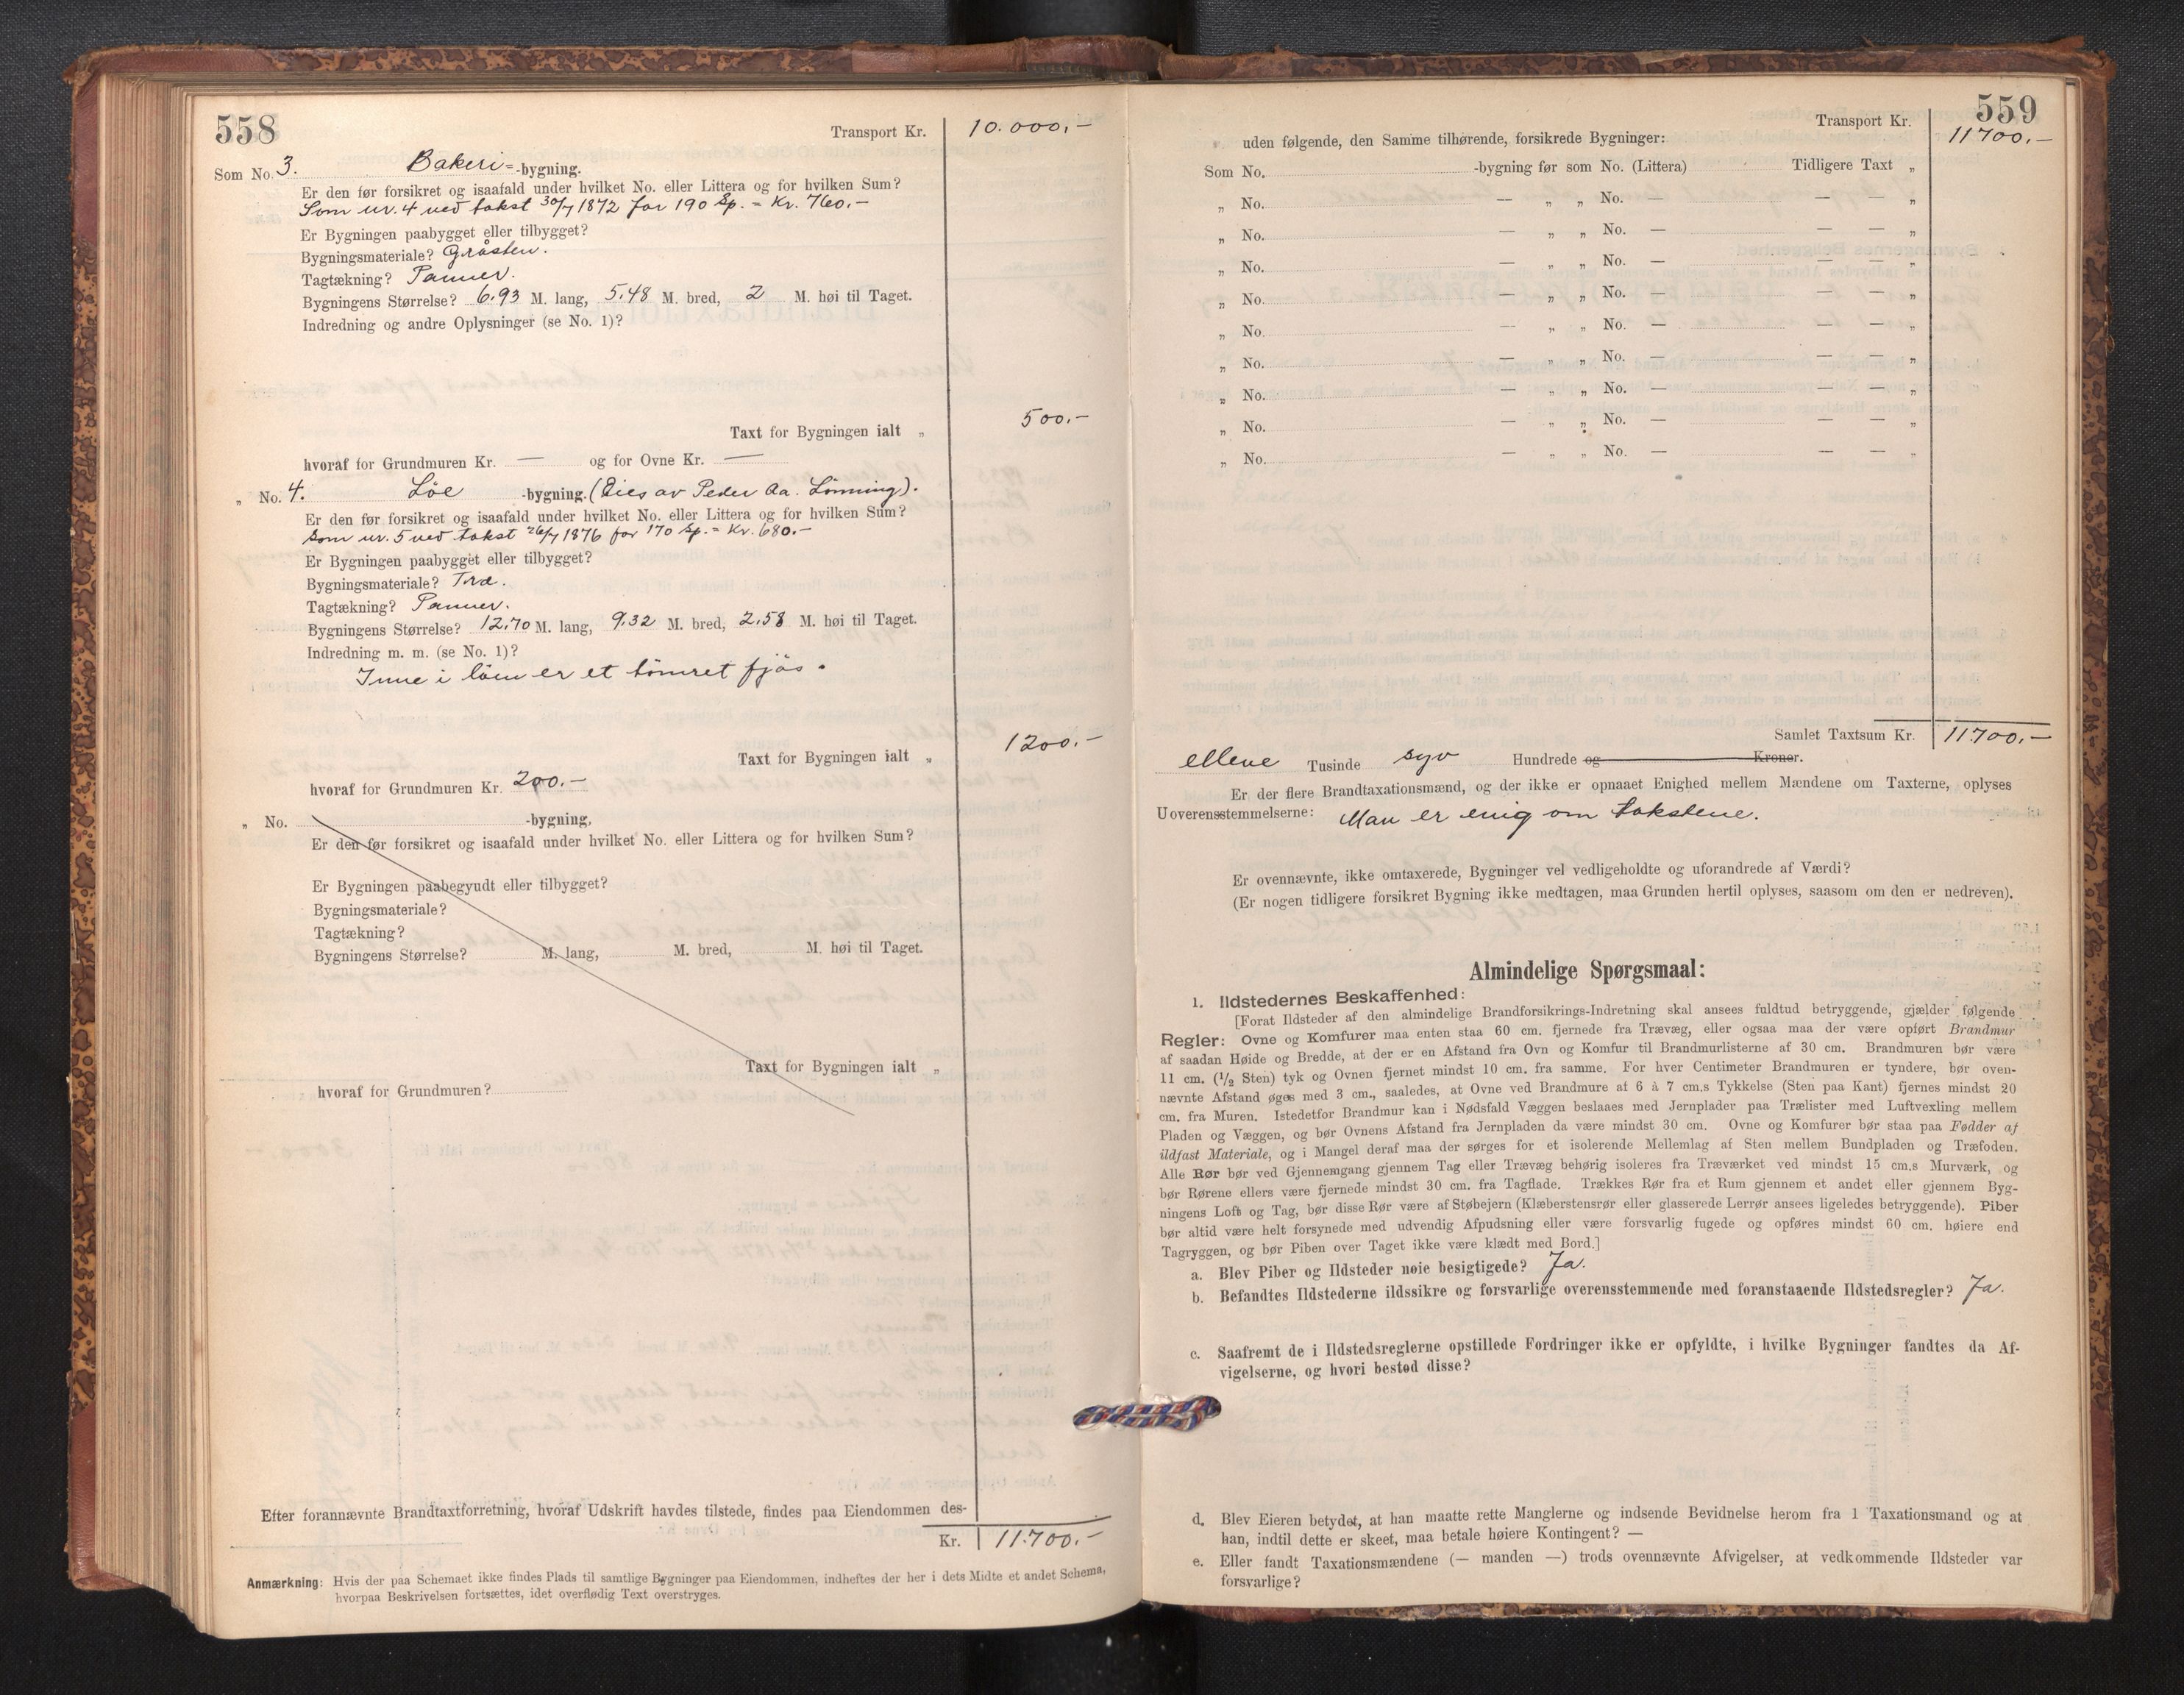 558
Transport Kr. 10.000,-
Som No. 3. Bakeri= -bygning.
Er den før forsikret og isaafald under hvilket No. eller Littera og for hvilken Sum?
Som nr. 4 ved takst 30/7 1872 for 190 Sp. = Kr. 760.-
Er Bygningen paabygget eller tilbygget?
Bygningsmateriale? Gråsten.
Tagtækning? Panner.
Bygningens Størrelse? 6,93 M. lang, 5,48 M. bred, 2 M. høi til Taget.
Indredning og andre Oplysninger (se No. 1)?
Taxt for Bygningen ialt „ 500.-
hvoraf for Grundmuren Kr. — og for Ovne Kr. —
„ No. 4. Löe -bygning. (Eies av Peder Aa. Lönning).
Er den før forsikret og isaafald under hvilket No. eller Littera og for hvilken Sum?
Som nr. 5 ved takst 26/7 1876 for 170 Sp. = Kr. 680.-
Er Bygningen paabygget eller tilbygget?
Bygningsmateriale? Træ.
Tagtækning? Panner.
Bygningens Størrelse? 12,70 M. lang, 9,32 M. bred, 2,58 M. høi til Taget.
Indredning m. m. (se No. 1)?
Inne i löen er et tömret fjös.
Taxt for Bygningen ialt „ 1200.-
hvoraf for Grundmuren Kr. 200.-
„ No. -bygning,
Er den før forsikret og isaafald under hvilket No. eller Littera og for hvilken Sum?
Er Bygningen paabegyndt eller tilbygget?
Bygningsmateriale?
Tagtækning?
Bygningens Størrelse? M. lang, M. bred, M. høi til Taget.
Taxt for Bygningen ialt „
hvoraf for Grundmuren?
Efter forannævnte Brandtaxtforretning, hvoraf Udskrift havdes tilstede, findes paa Eiendommen des-
Kr. 11.700.-
Anmærkning: Hvis der paa Schemaet ikke findes Plads til samtlige Bygninger paa Eiendommen, indheftes der her i dets Midte et andet Schema,
hvorpaa Beskrivelsen fortsættes, idet overflødig Text overstryges.
559
Transport Kr. 11700.-
uden følgende, den Samme tilhørende, forsikrede Bygninger:
Som No. -bygning før som No. (Littera) Tidligere Taxt „
„ No. — „ „ No. — — — „
„ No. — „ „ No. — — — „
„ No. — „ „ No. — — — „
„ No. — „ „ No. — — — „
„ No. — „ „ No. — — — „
„ No. — „ „ No. — — — „
„ No. — „ „ No. — — — „
„ No. — „ „ No. — — — „
„ No. — „ „ No. — — — „
Samlet Taxtsum Kr. 11.700.-
elleve Tusinde syv Hundrede og Kroner.
Er der flere Brandtaxationsmænd, og der ikke er opnaaet Enighed mellem Mændene om Taxterne, oplyses
Uoverensstemmelserne: Man er enig om takstene.
Er ovennævnte, ikke omtaxerede, Bygninger vel vedligeholdte og uforandrede af Værdi?
(Er nogen tidligere forsikret Bygning ikke medtagen, maa Grunden hertil oplyses, saasom om den er nedreven).
Almindelige Spørgsmaal:
1. Ildstedernes Beskaffenhed:
[Forat Ildsteder af den almindelige Brandforsikrings-Indretning skal ansees fuldtud betryggende, gjælder følgende
Regler: Ovne og Komfurer maa enten staa 60 cm. fjernede fra Trævæg, eller ogsaa maa der være opført Brandmur
af saadan Høide og Bredde, at der er en Afstand fra Ovn og Komfur til Brandmurlisterne af 30 cm. Brandmuren bør være
11 cm. (1/2 Sten) tyk og Ovnen fjernet mindst 10 cm. fra samme. For hver Centimeter Brandmuren er tyndere, bør oven-
nævnte Afstand øges med 3 cm., saaledes, at Ovne ved Brandmure af 6 à 7 cm.s Tykkelse (Sten paa Kant) fjernes mindst 20
cm. fra Muren. Istedetfor Brandmur kan i Nødsfald Væggen beslaaes med Jernplader paa Trælister med Luftvexling mellem
Pladen og Væggen, og bør Ovnens Afstand fra Jernpladen da være mindst 30 cm. Ovne og Komfurer bør staa paa Fødder af
ildfast Materiale, og i Mangel deraf maa der sørges for et isolerende Mellemlag af Sten mellem Bundpladen og Træfoden.
Alle Rør bør ved Gjennemgang gjennem Tag eller Trævæg behørig isoleres fra Træværket ved mindst 15 cm.s Murværk, og
bør Rørene ellers være fjernede mindst 30 cm. fra Tagflade. Trækkes Rør fra et Rum gjennem et andet eller gjennem Byg-
ningens Loft og Tag, bør disse Rør være af Støbejern (Klæberstensrør eller glasserede Lerrør ansees ligeledes betryggende). Piber
bør altid være helt forsynede med udvendig Afpudsning eller være forsvarlig fugede og opføres mindst 60 cm. høiere end
Tagryggen, og bør Piben over Taget ikke være klædt med Bord.]
a. Blev Piber og Ildsteder nøie besigtigede? Ja.
b. Befandtes Ildstederne ildssikre og forsvarlige overensstemmende med foranstaaende Ildstedsregler? Ja.
c. Saafremt de i Ildstedsreglerne opstillede Fordringer ikke er opfyldte, i hvilke Bygninger fandtes da Af-
vigelserne, og hvori bestod disse?
d. Blev Eieren betydet, at han maatte rette Manglerne og indsende Bevidnelse herom fra 1 Taxationsmand og at
han, indtil dette er skeet, maa betale høiere Kontingent? —
e. Eller fandt Taxationsmændene (— manden —) trods ovennævnte Afvigelser, at vedkommende Ildsteder var
forsvarlige?